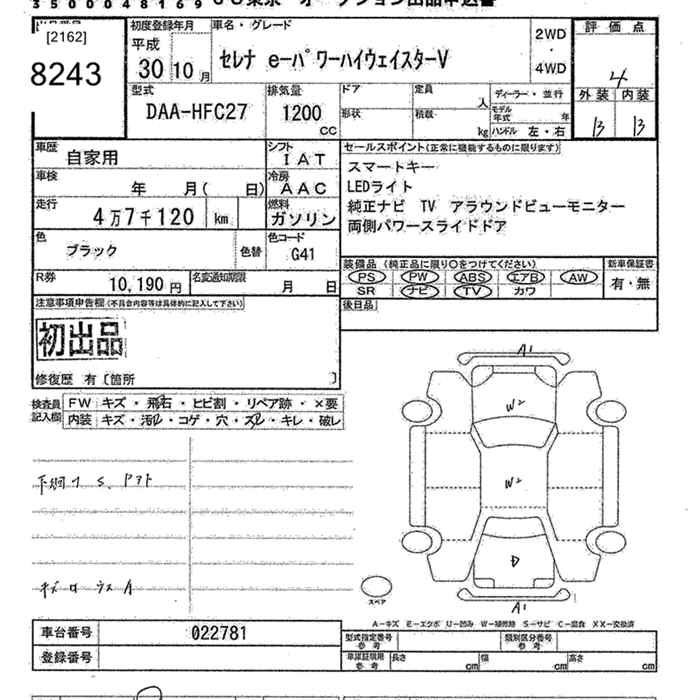 3500048169
[2162]
8243
初度登録年月
平成
30 10 月
車名・グレード
セレナ e-パワーハイウェイスターV
2WD
・
4WD
評価点
4
外装 内装
B B
型式
DAA-HFC27
排気量
1200
cc
ドア
形状
定員
人
積載
kg
ディーラー・並行
モデル
年式
年
ハンドル 左・右
車歴
自家用
シフト
IAT
車検
年 月( 日)
冷房
AAC
走行
4万7千120 km
燃料
ガソリン
色
ブラック
色替
色コード
G41
セールスポイント(正常に機能するものに限ります)
スマートキー
LEDライト
純正ナビ TV アラウンドビューモニター
両側パワースライドドア
R券
10,190 円
名変通知期限
月 日
装備品 (純正品に限り〇をつけてください)
PS PW ABS エアB AW
SR ナビ TV カワ
新車保証書
有・無
後日品
注意事項申告欄(不具合内容等は具体的に記入して下さい)
初出品
修復歴 有〔箇所 〕
検査員
記入欄
FW キズ・飛石・ヒビ割・リペア跡・×要
内装 キズ・汚レ・コゲ・穴・スレ・キレ・破レ
A1
W2
W2
D
A1
スペア
A-キズ E-エクボ U-凹み W-補修跡 S-サビ C-腐食 XX-交換済
車台番号
022781
登録番号
型式指定番号
参考
類別区分番号
参考
車庫証明用
参考
長さ
cm
幅
cm
高さ
cm